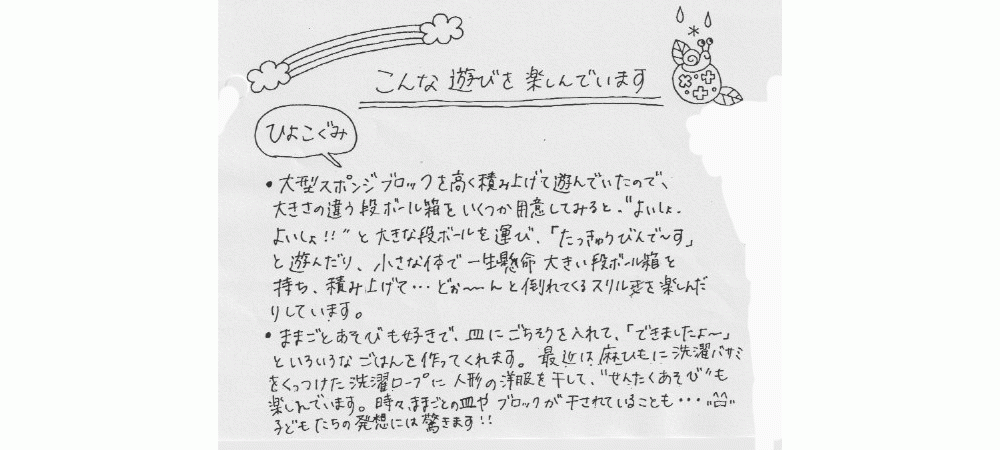 こんな遊びを楽しんでいます
ひよこぐみ
・大型スポンジブロックを高く積み上げて遊んでいたので、
大きさの違う段ボール箱をいくつか用意してみると、"よいしょ、
よいしょ!!"と大きな段ボールを運び、「たっきゅうびんで〜す」
と遊んだり、小さな体で一生懸命大きい段ボール箱を
持ち、積み上げて…どぉ〜〜んと倒れてくるスリルを楽しんだ
りしています。
・ままごとあそびも好きで、皿にごちそうを入れて、「できましたよ〜」
といろいろなごはんを作ってくれます。最近は麻ひもに洗濯バサミ
をくっつけた洗濯ロープに人形の洋服を干して、"せんたくあそび"も
楽しんでいます。時々、ままごとの皿やブロックが干されていることも・・・
子どもたちの発想には驚きます!!